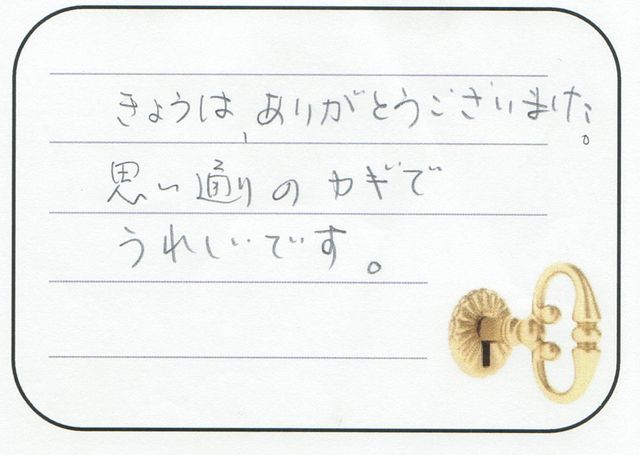 きょうは、ありがとうございました。
思い通りのカギで
うれしいです。